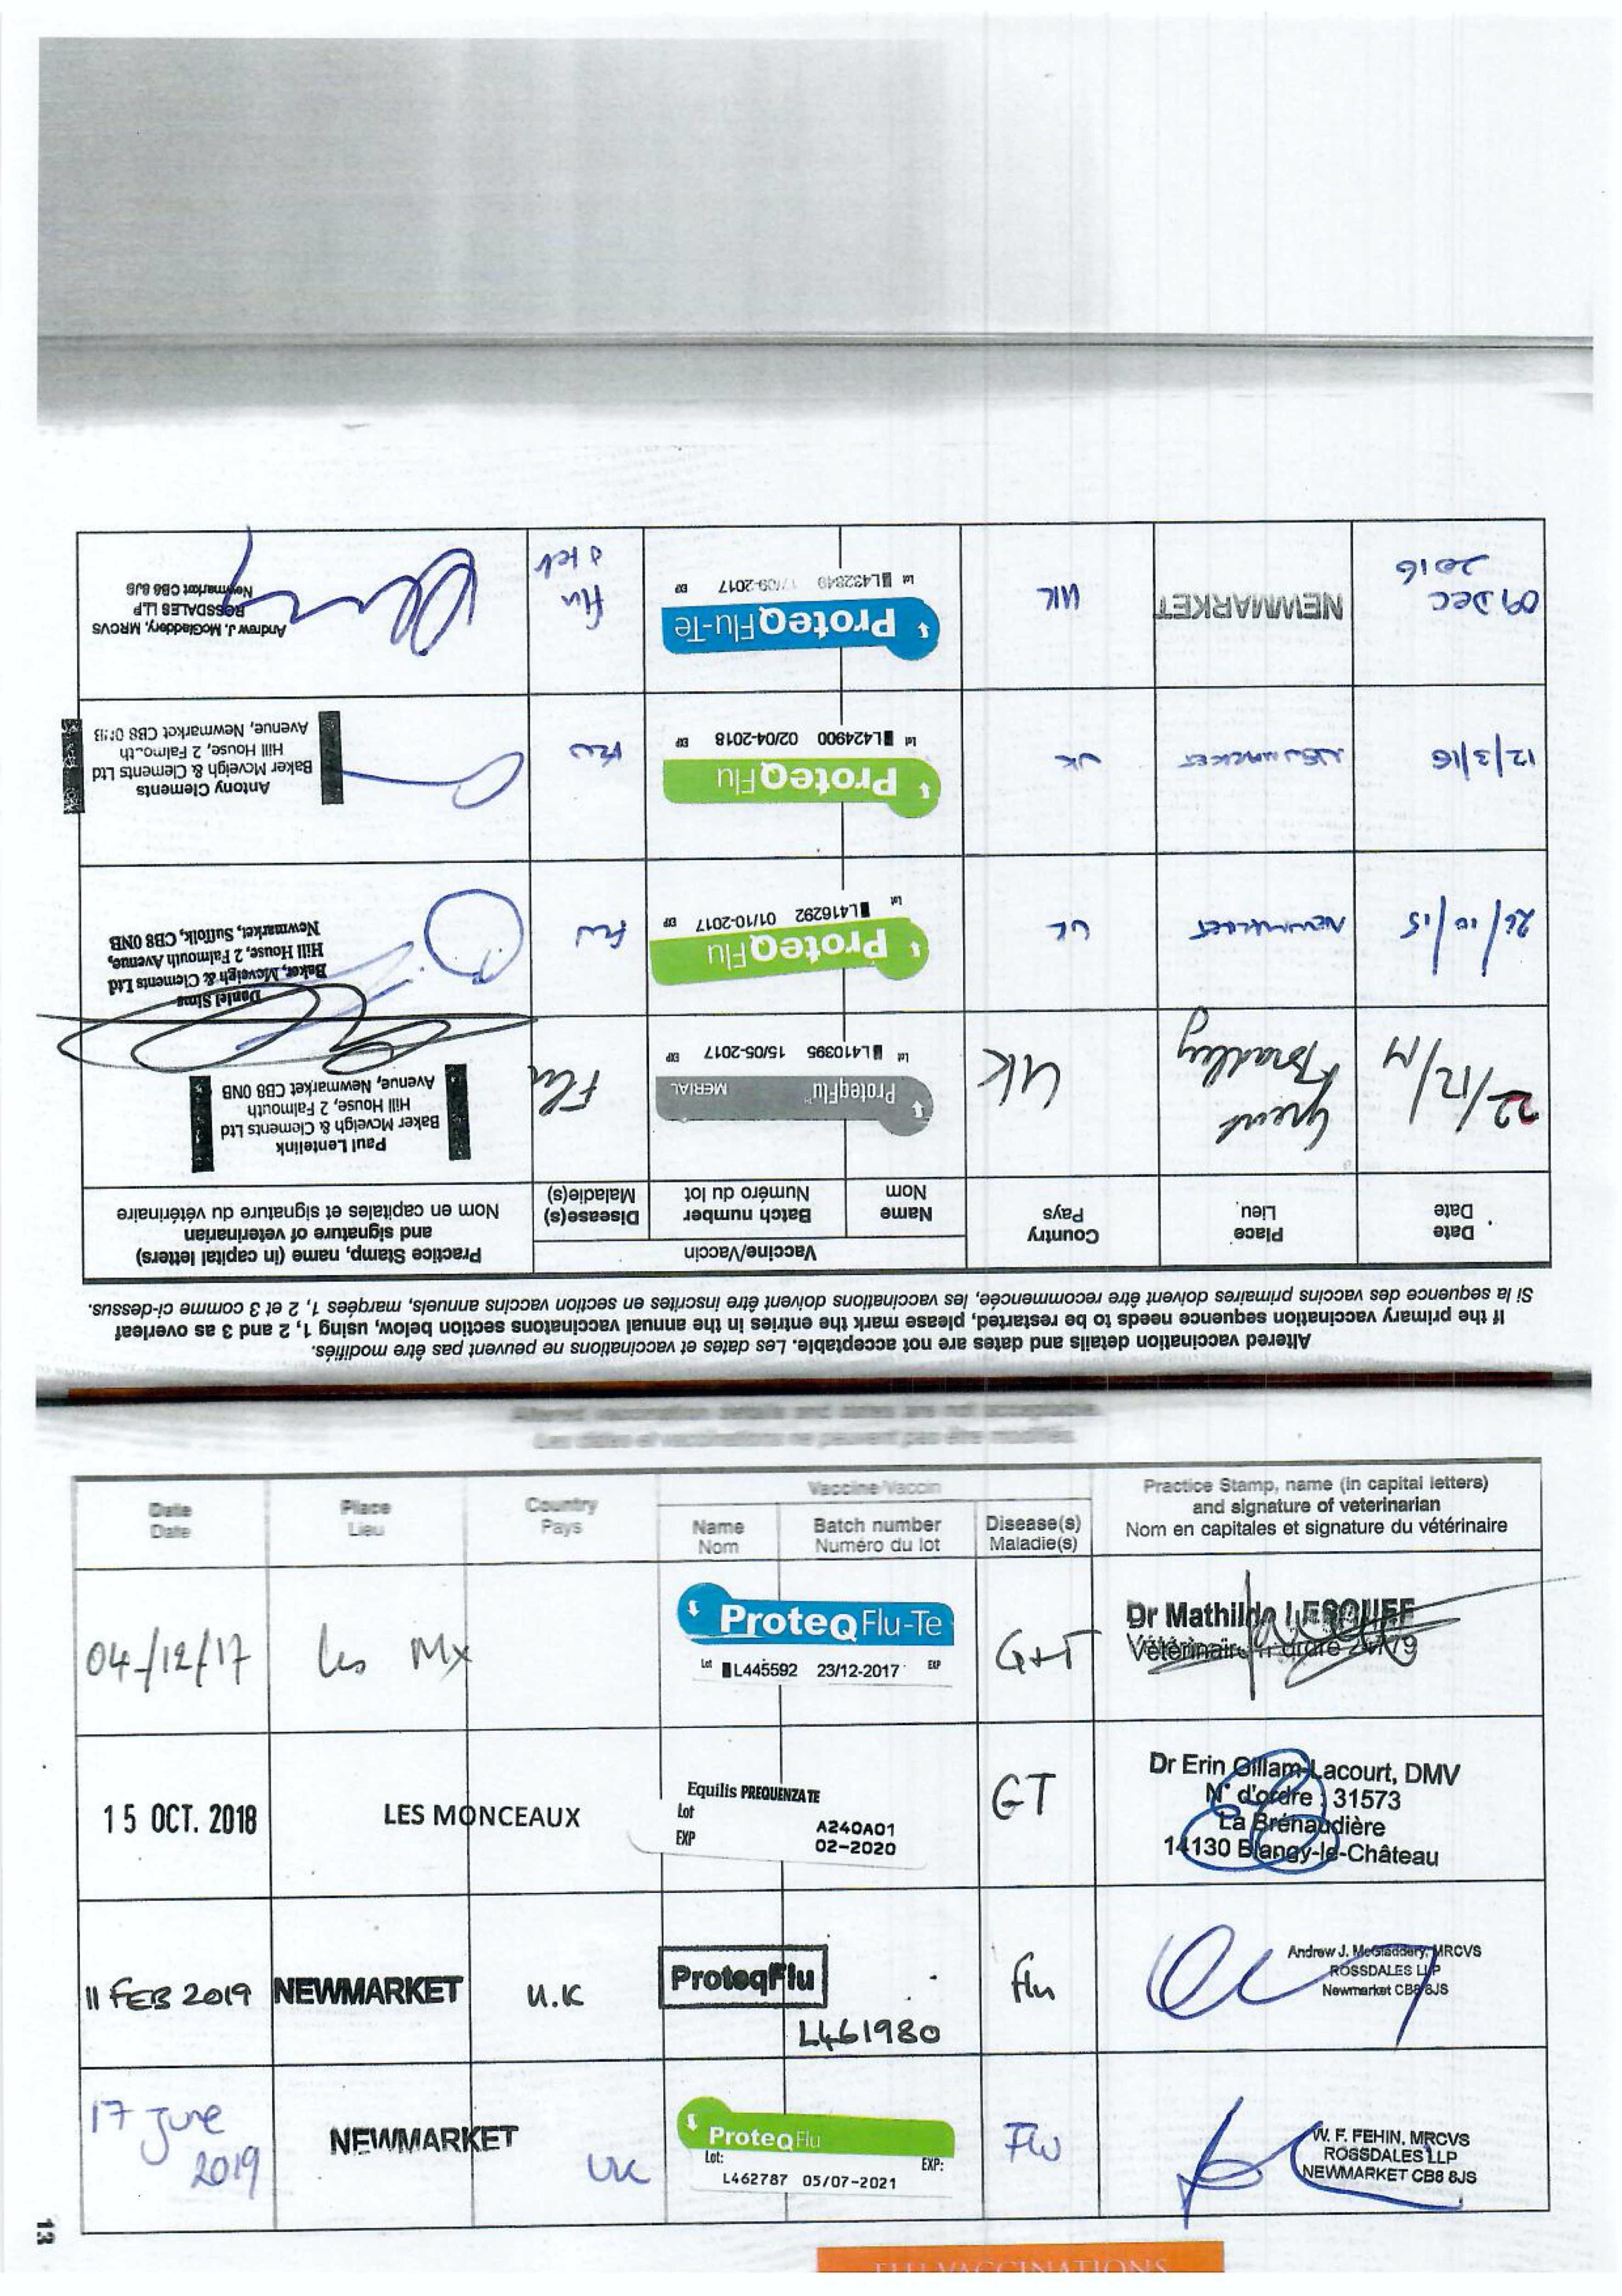 Altered vaccination details and dates are not acceptable. Les dates et vaccinations ne peuvent pas être modifiés.
If the primary vaccination sequence needs to be restarted, please mark the entries in the annual vaccinatons section below, using 1, 2 and 3 as overleaf
Si la sequence des vaccins primaires doivent être recommencée, les vaccinations doivent être inscrites en section vaccins annuels, margées 1, 2 et 3 comme ci-dessus.
Date
Date
Place
Lieu
Country
Pays
Vaccine/Vaccin
Name
Nom
Batch number
Numéro du lot
Disease(s)
Maladie(s)
Practice Stamp, name (in capital letters)
and signature of veterinarian.
Nom en capitales et signature du vétérinaire
22/12/14
Great
Bradley
UK
ProteqFlu MERIAL
Lot L410395 15/05-2017 EXP
Flu
Paul Lentelink
Baker Mcveigh & Clements Ltd
Hill House, 2 Falmouth
Avenue, Newmarket CB8 0NB
26/10/15
NEWMARKET
UK
ProteqFlu
Lot L416292 01/10-2017 EXP
Flu
Daniel Sims
Baker, Mcveigh & Clements Ltd
Hill House, 2 Falmouth Avenue,
Newmarket, Suffolk, CB8 0NB
12/3/16
NEWMARKET
UK
ProteqFlu
Lot L424900 02/04-2018 EXP
Flu
Antony Clements
Baker Mcveigh & Clements Ltd
Hill House, 2 Falmouth
Avenue, Newmarket CB8 0NB
09 DEC
2016
NEWMARKET
UK
ProteqFlu-Te
Lot L432849 17/09-2017 EXP
Flu
& tet
Andrew J. McGladdery, MRCVS
ROSSDALES LLP
Newmarket CB8 8JS
Altered vaccination details and dates are not acceptable.
Les dates et vaccinations ne peuvent pas être modifiés.
Date
Date
Place
Lieu
Country
Pays
Vaccine/Vaccin
Name
Nom
Batch number
Numéro du lot
Disease(s)
Maladie(s)
Practice Stamp, name (in capital letters)
and signature of veterinarian
Nom en capitales et signature du vétérinaire
04/12/17
Les Mx
ProteqFlu-Te
Lot L445592 23/12-2017 EXP
G+T
Dr Mathilde LESOUEF
Vétérinaire
15 OCT. 2018
LES MONCEAUX
Equilis PREQUENZA TE
Lot A240A01
EXP 02-2020
GT
Dr Erin Gillam-Lacourt, DMV
N° d'ordre : 31573
La Brénaudière
14130 Blangy-le-Château
11 FEB 2019
NEWMARKET
U.K
ProteqFlu
L461980
Flu
Andrew J. McGladdery, MRCVS
ROSSDALES LLP
Newmarket CB8 8JS
17 June
2019
NEWMARKET
UK
ProteqFlu
Lot: EXP:
L462787 05/07-2021
Flu
W. F. FEHIN, MRCVS
ROSSDALES LLP
NEWMARKET CB8 8JS
13
FLU VACCINATIONS